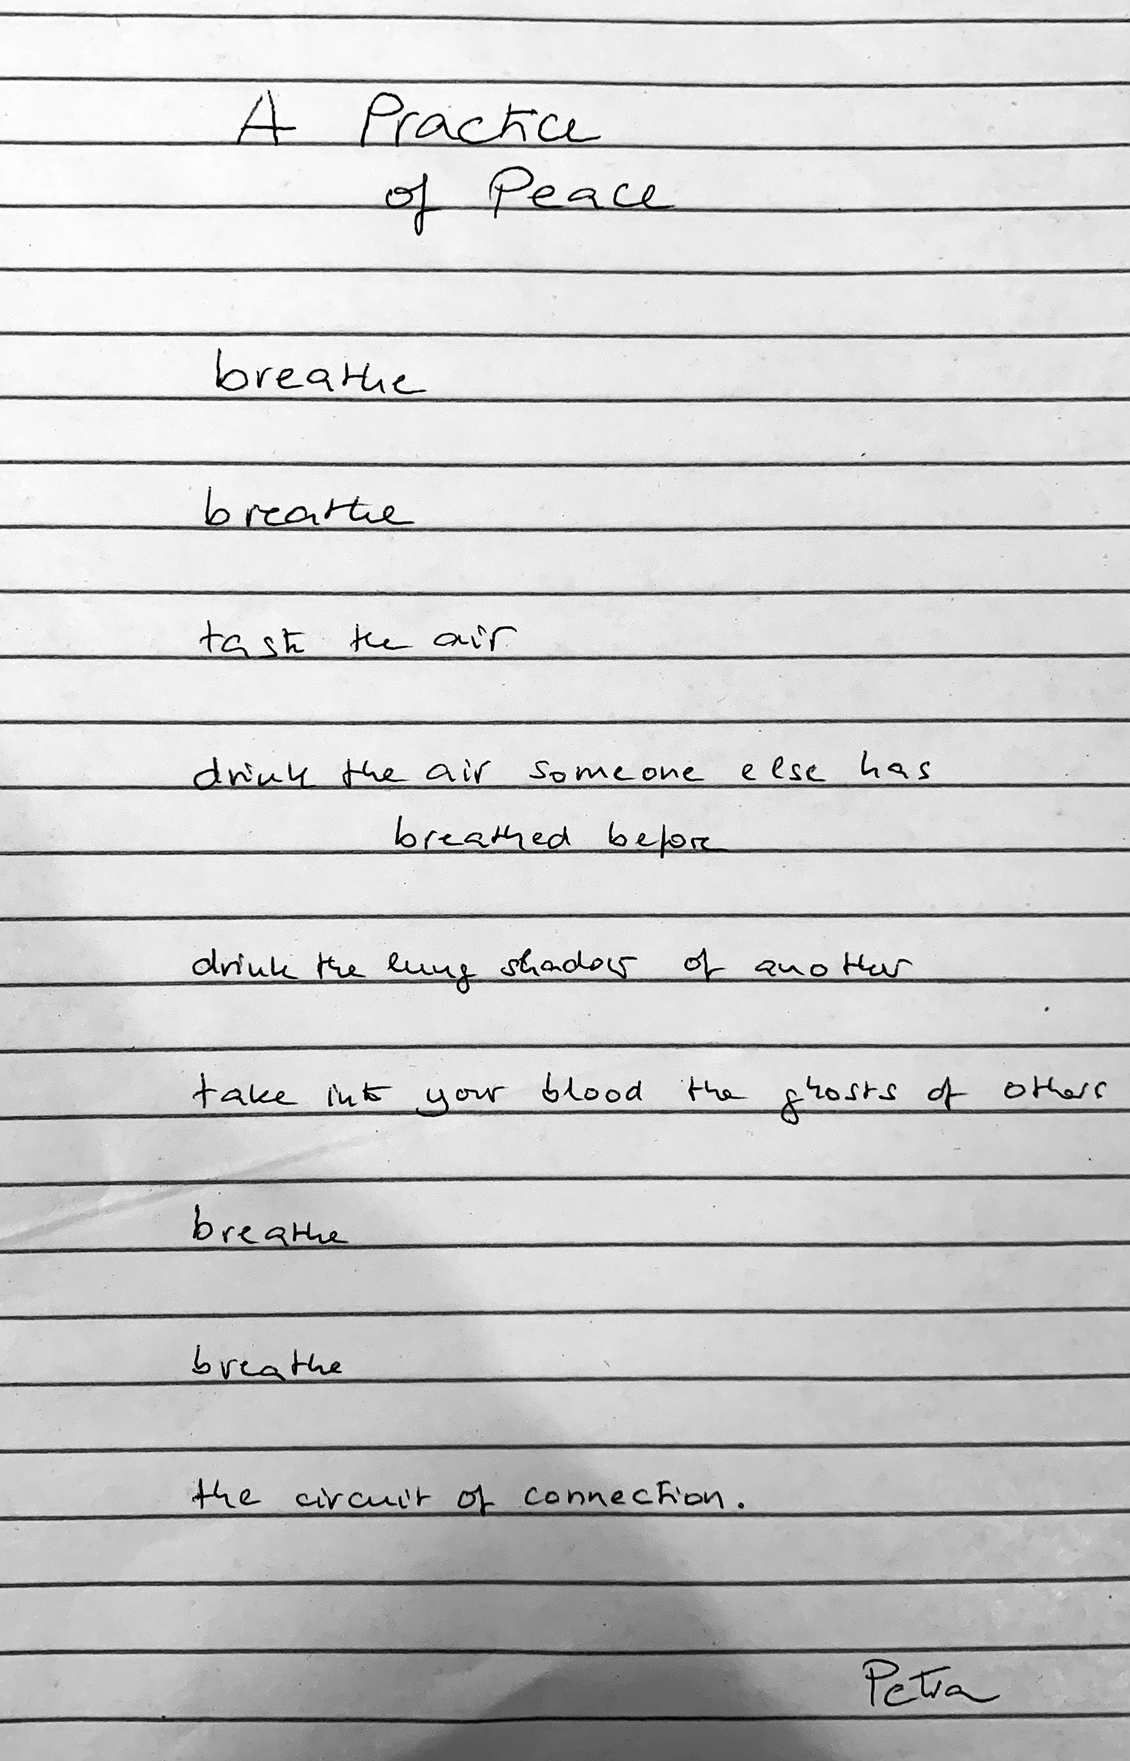 A Practice
of Peace
breathe
breathe
taste the air
drink the air someone else has
breathed before
drink the lung shadow of another
take into your blood the ghosts of others
breathe
breathe
the circuit of connection.
Petra